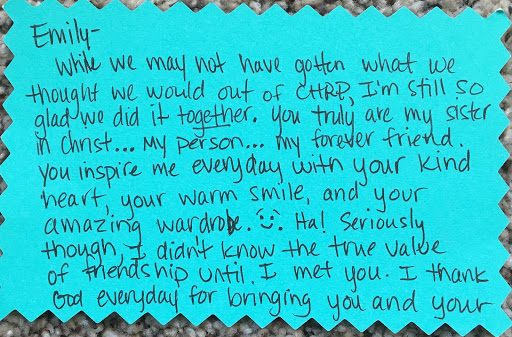 Emily-
While we may not have gotten what we
thought we would out of CHRP, I'm still so
glad we did it together. You truly are my sister
in Christ... my person... my forever friend.
You inspire me everyday with your kind
heart, your warm smile, and your
amazing wardrobe. Ha! Seriously
though, I didn't know the true value
of friendship until I met you. I thank
God everyday for bringing you and your